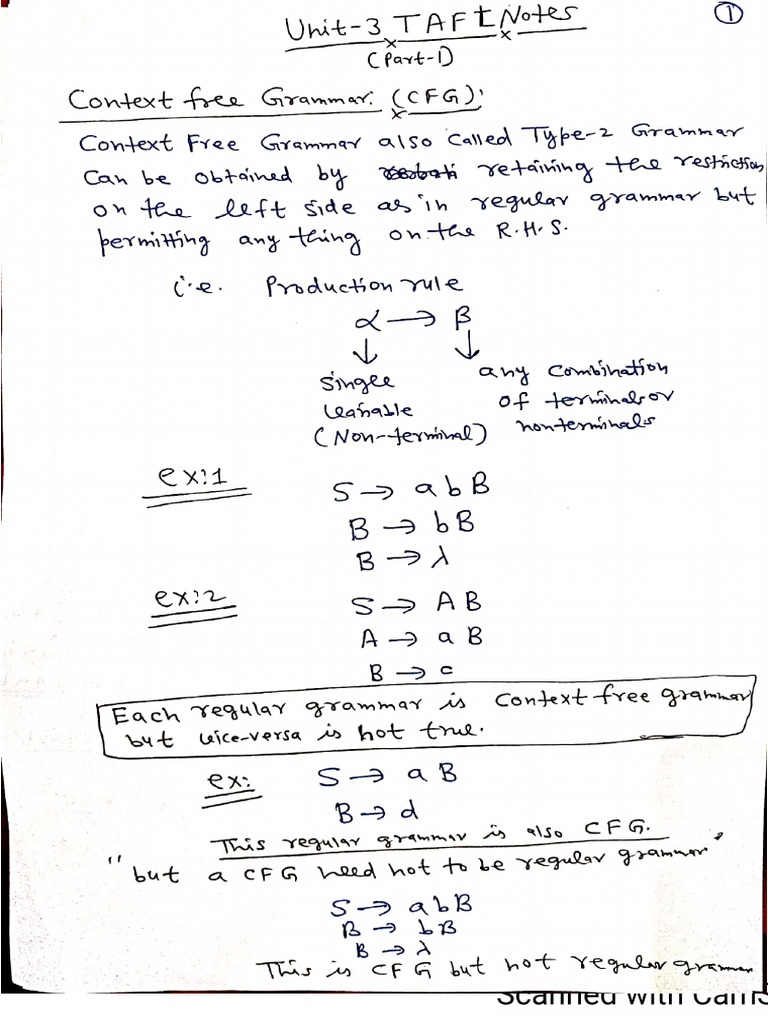 ①
Unit-3 TAFL Notes
(Part-1)
Context free Grammar: (CFG):
Context Free Grammar also Called Type-2 Grammar
Can be obtained by retaining the restriction
on the left side as in regular grammar but
permitting any thing on the R.H.S.
i.e. Production rule
α → β
↓ ↓
Single any Combination
(Non-terminal) of terminals or
nonterminals
ex:1 S → abB
B → bB
B → λ
ex:2 S → AB
A → aB
B → c
Each regular grammar is Context free grammar
but vice-versa is not true.
ex: S → aB
B → d
This regular grammar is also CFG.
"but a CFG need not to be regular grammar"
S → abB
B → bB
B → λ
This is CFG but not regular grammar
Scanned with CamS